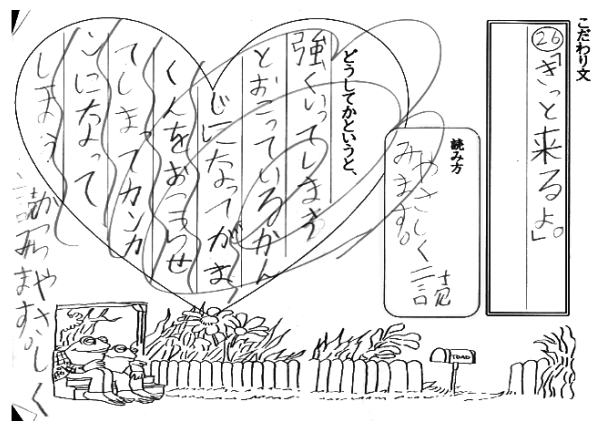 こだわり文
26「きっと来るよ。」
読み方
やさしく読
みます。
どうしてかというと、
強くいってしまうう
とおこっているかん
じになってがま
くんをおこらせ
てしまってカンカ
ンになって
しまう
からやさしく
読みます。
TOAD